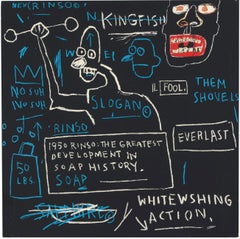 NEW RINSO©
KINGFISH
NO SUH
NO SUH
SLOGAN©
II. FOOL.
THEM
SHOVELS
RINSO
EVERLAST
50
LBS.
1950 RINSO: THE GREATEST
DEVELOPMENT IN
SOAP HISTORY.
SOAP
WHITEWSHING
ACTION.